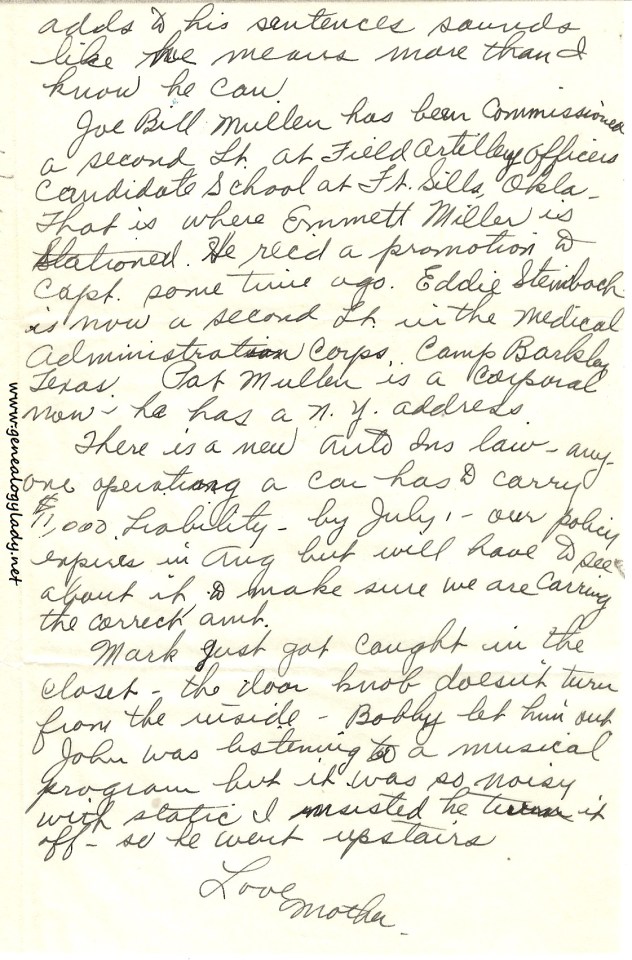 adds to his sentences sounds
like he means more than I
know he can
Joe Bill Mullen has been Commissioned
a second Lt. at Field Artilley Officers
Candidate School at Ft. Sills, Okla-
That is where Emmett Miller is
Stationed. He recd a promotion to
Capt. some time ago. Eddie Steinbach
is now a second Lt. in the Medical
Administration Corps, Camp Barkley
Texas Pat Mullen is a Corporal
now - he has a N. Y. address.
There is a new Auto Ins law - any-
one operating a car has to carry
$11,000 Liability - by July 1 - our policy
expires in Aug but will have to see
about it to make sure we are Carring
the correct amt.
Mark just got caught in the
closet - the door knob doesn't turn
from the inside - Bobby let him out
John was listening to a musical
program but it was so noisy
with static I insisted he turn it
off - so he went upstairs
Love
Mother.
www.genealogylady.net